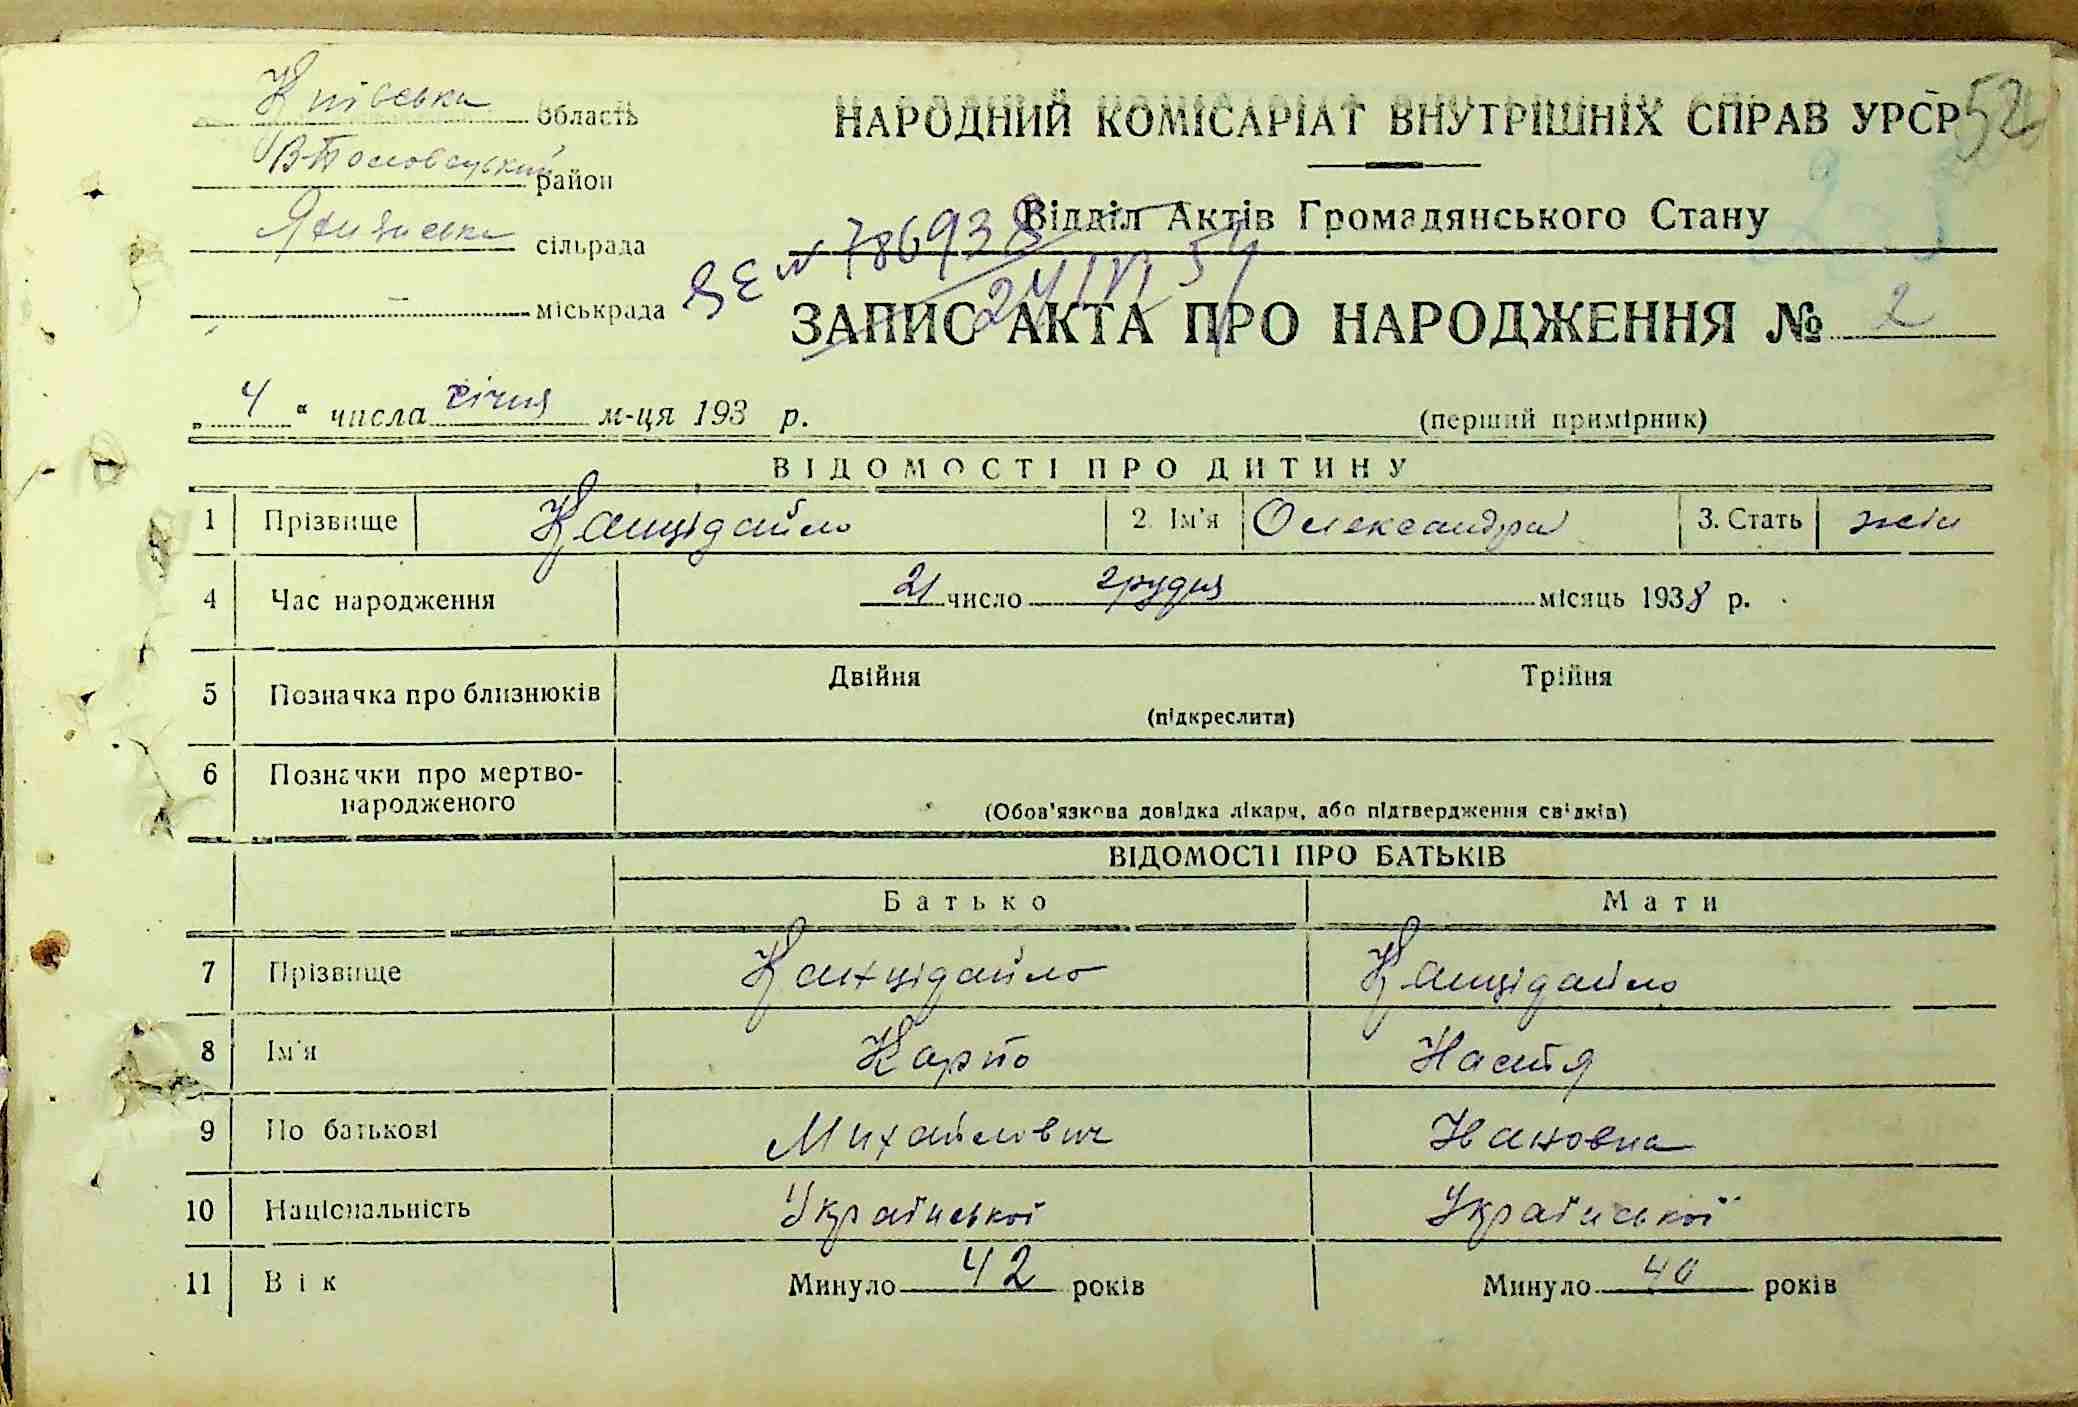 Київська область
В-Половецький район
сільрада
міськрада
52
НАРОДНИЙ КОМІСАРІАТ ВНУТРІШНІХ СПРАВ УРСР
Відділ Актів Громадянського Стану
№ 786938
24/IV 54
ЗАПИС АКТА ПРО НАРОДЖЕННЯ № 2
„ 4 “ числа січня м-ця 193 р.
(перший примірник)
ВІДОМОСТІ ПРО ДИТИНУ
1 Прізвище Канцідайло 2. Ім'я Олександра 3. Стать жін
4 Час народження 21 число грудня місяць 1938 р.
5 Позначка про близнюків Двійня Трійня
(підкреслити)
6 Позначки про мертво-
народженого
(Обов'язкова довідка лікаря, або підтвердження свідків)
ВІДОМОСТІ ПРО БАТЬКІВ
Батько Мати
7 Прізвище Канцідайло Канцідайло
8 Ім'я Карпо Настя
9 По батькові Михайлович Ивановна
10 Національність Української Української
11 Вік Минуло 42 років Минуло 40 років